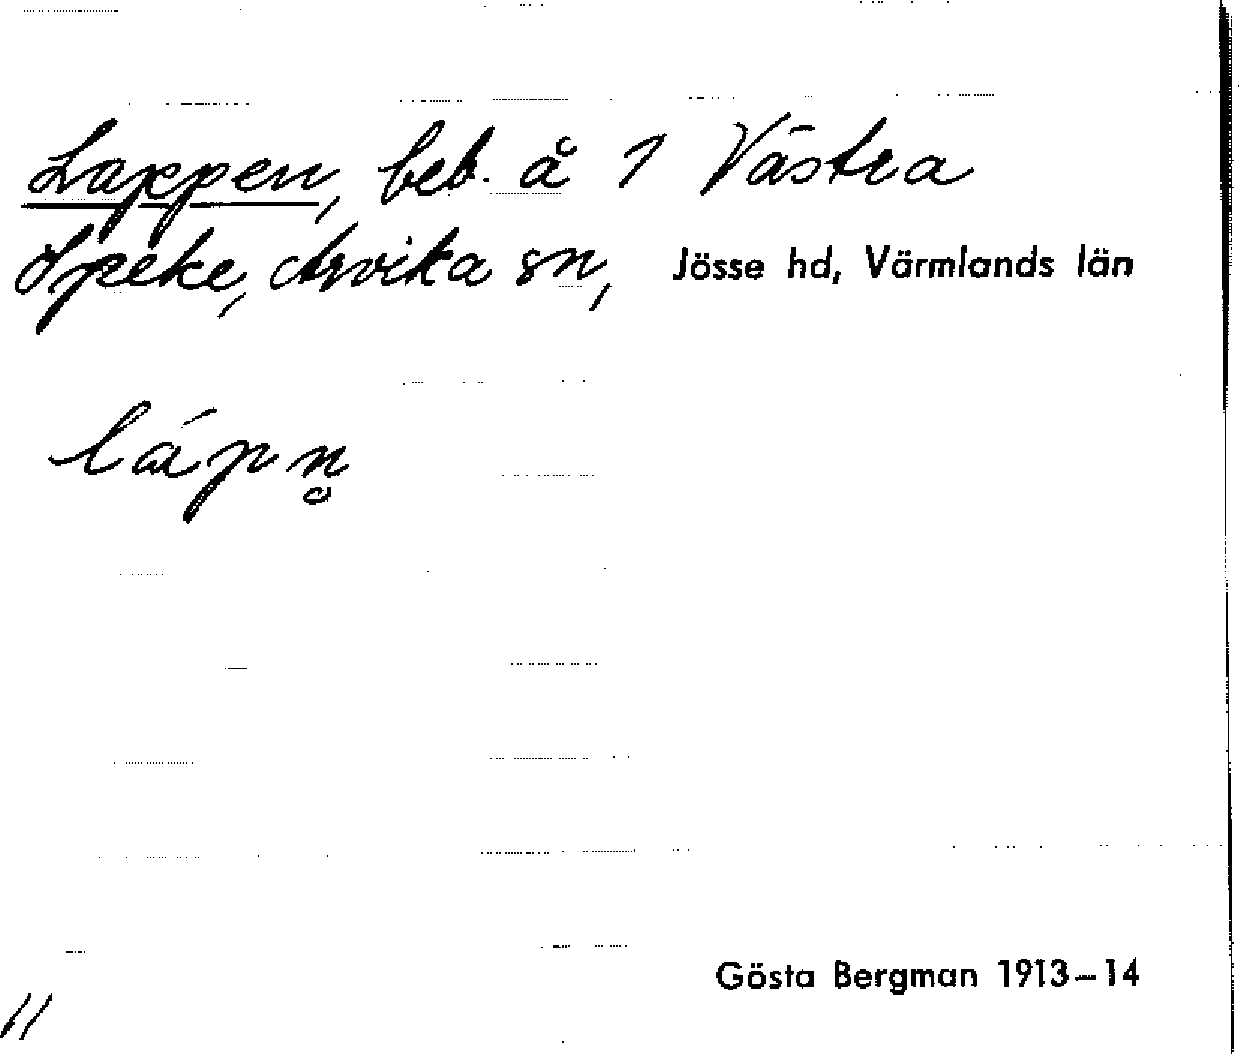 Lappen, beb. å 1 Västra
Speke, Arvika sn, Jösse hd, Värmlands län
lápn̥
Gösta Bergman 1913–14